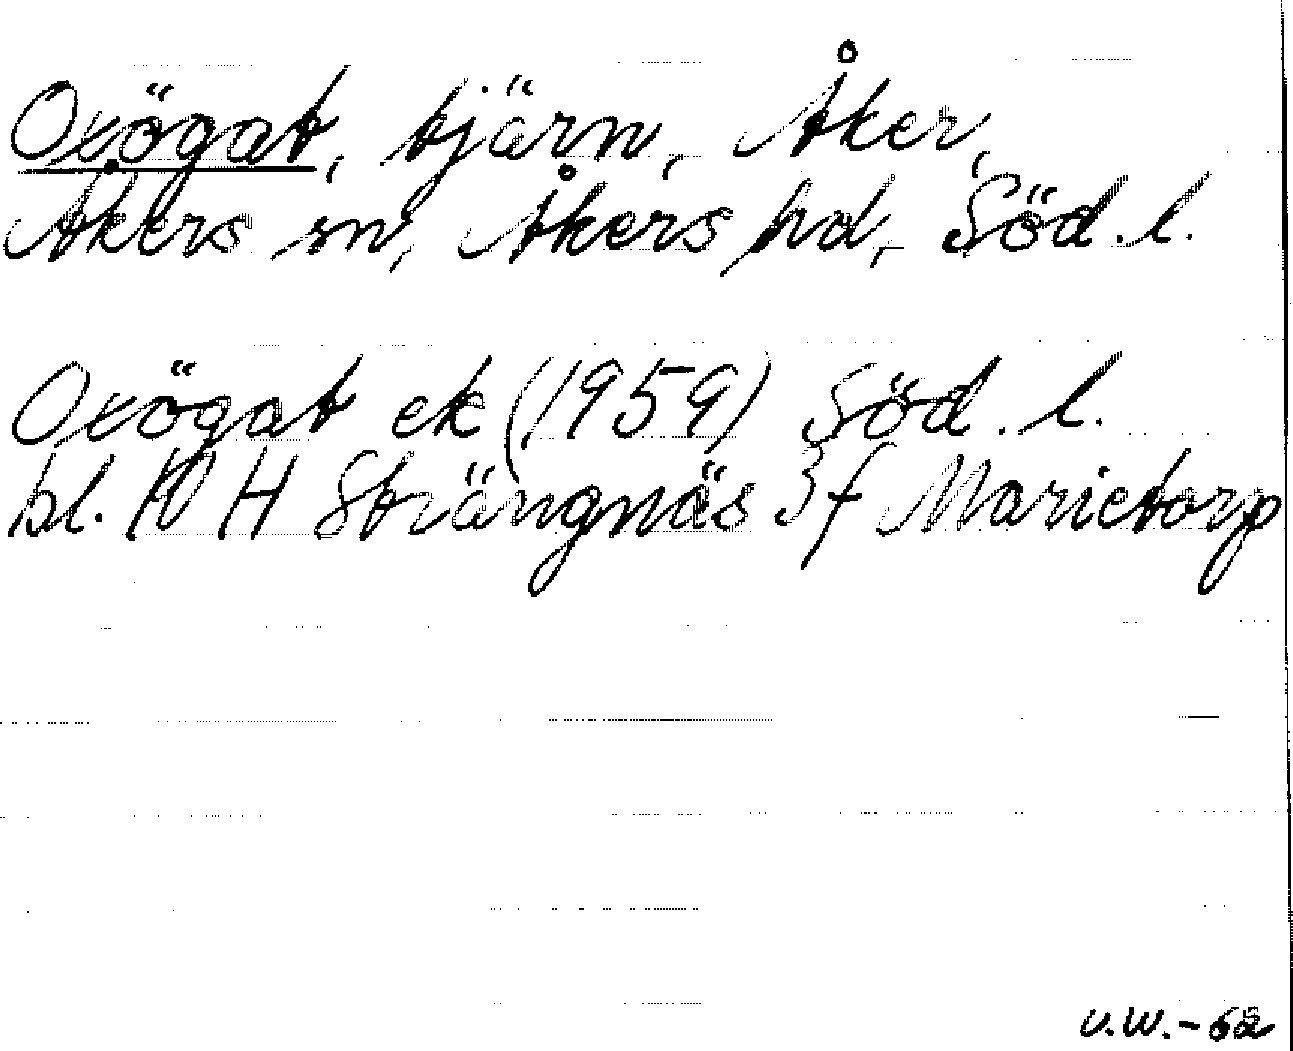 Oxögat, tjärn, Åker,
Åkers sn, Åkers hd, Söd. l.
Oxögat ek (1959) Söd. l.
bl. 10 H Strängnäs 3f Marietorp
U.W.-62